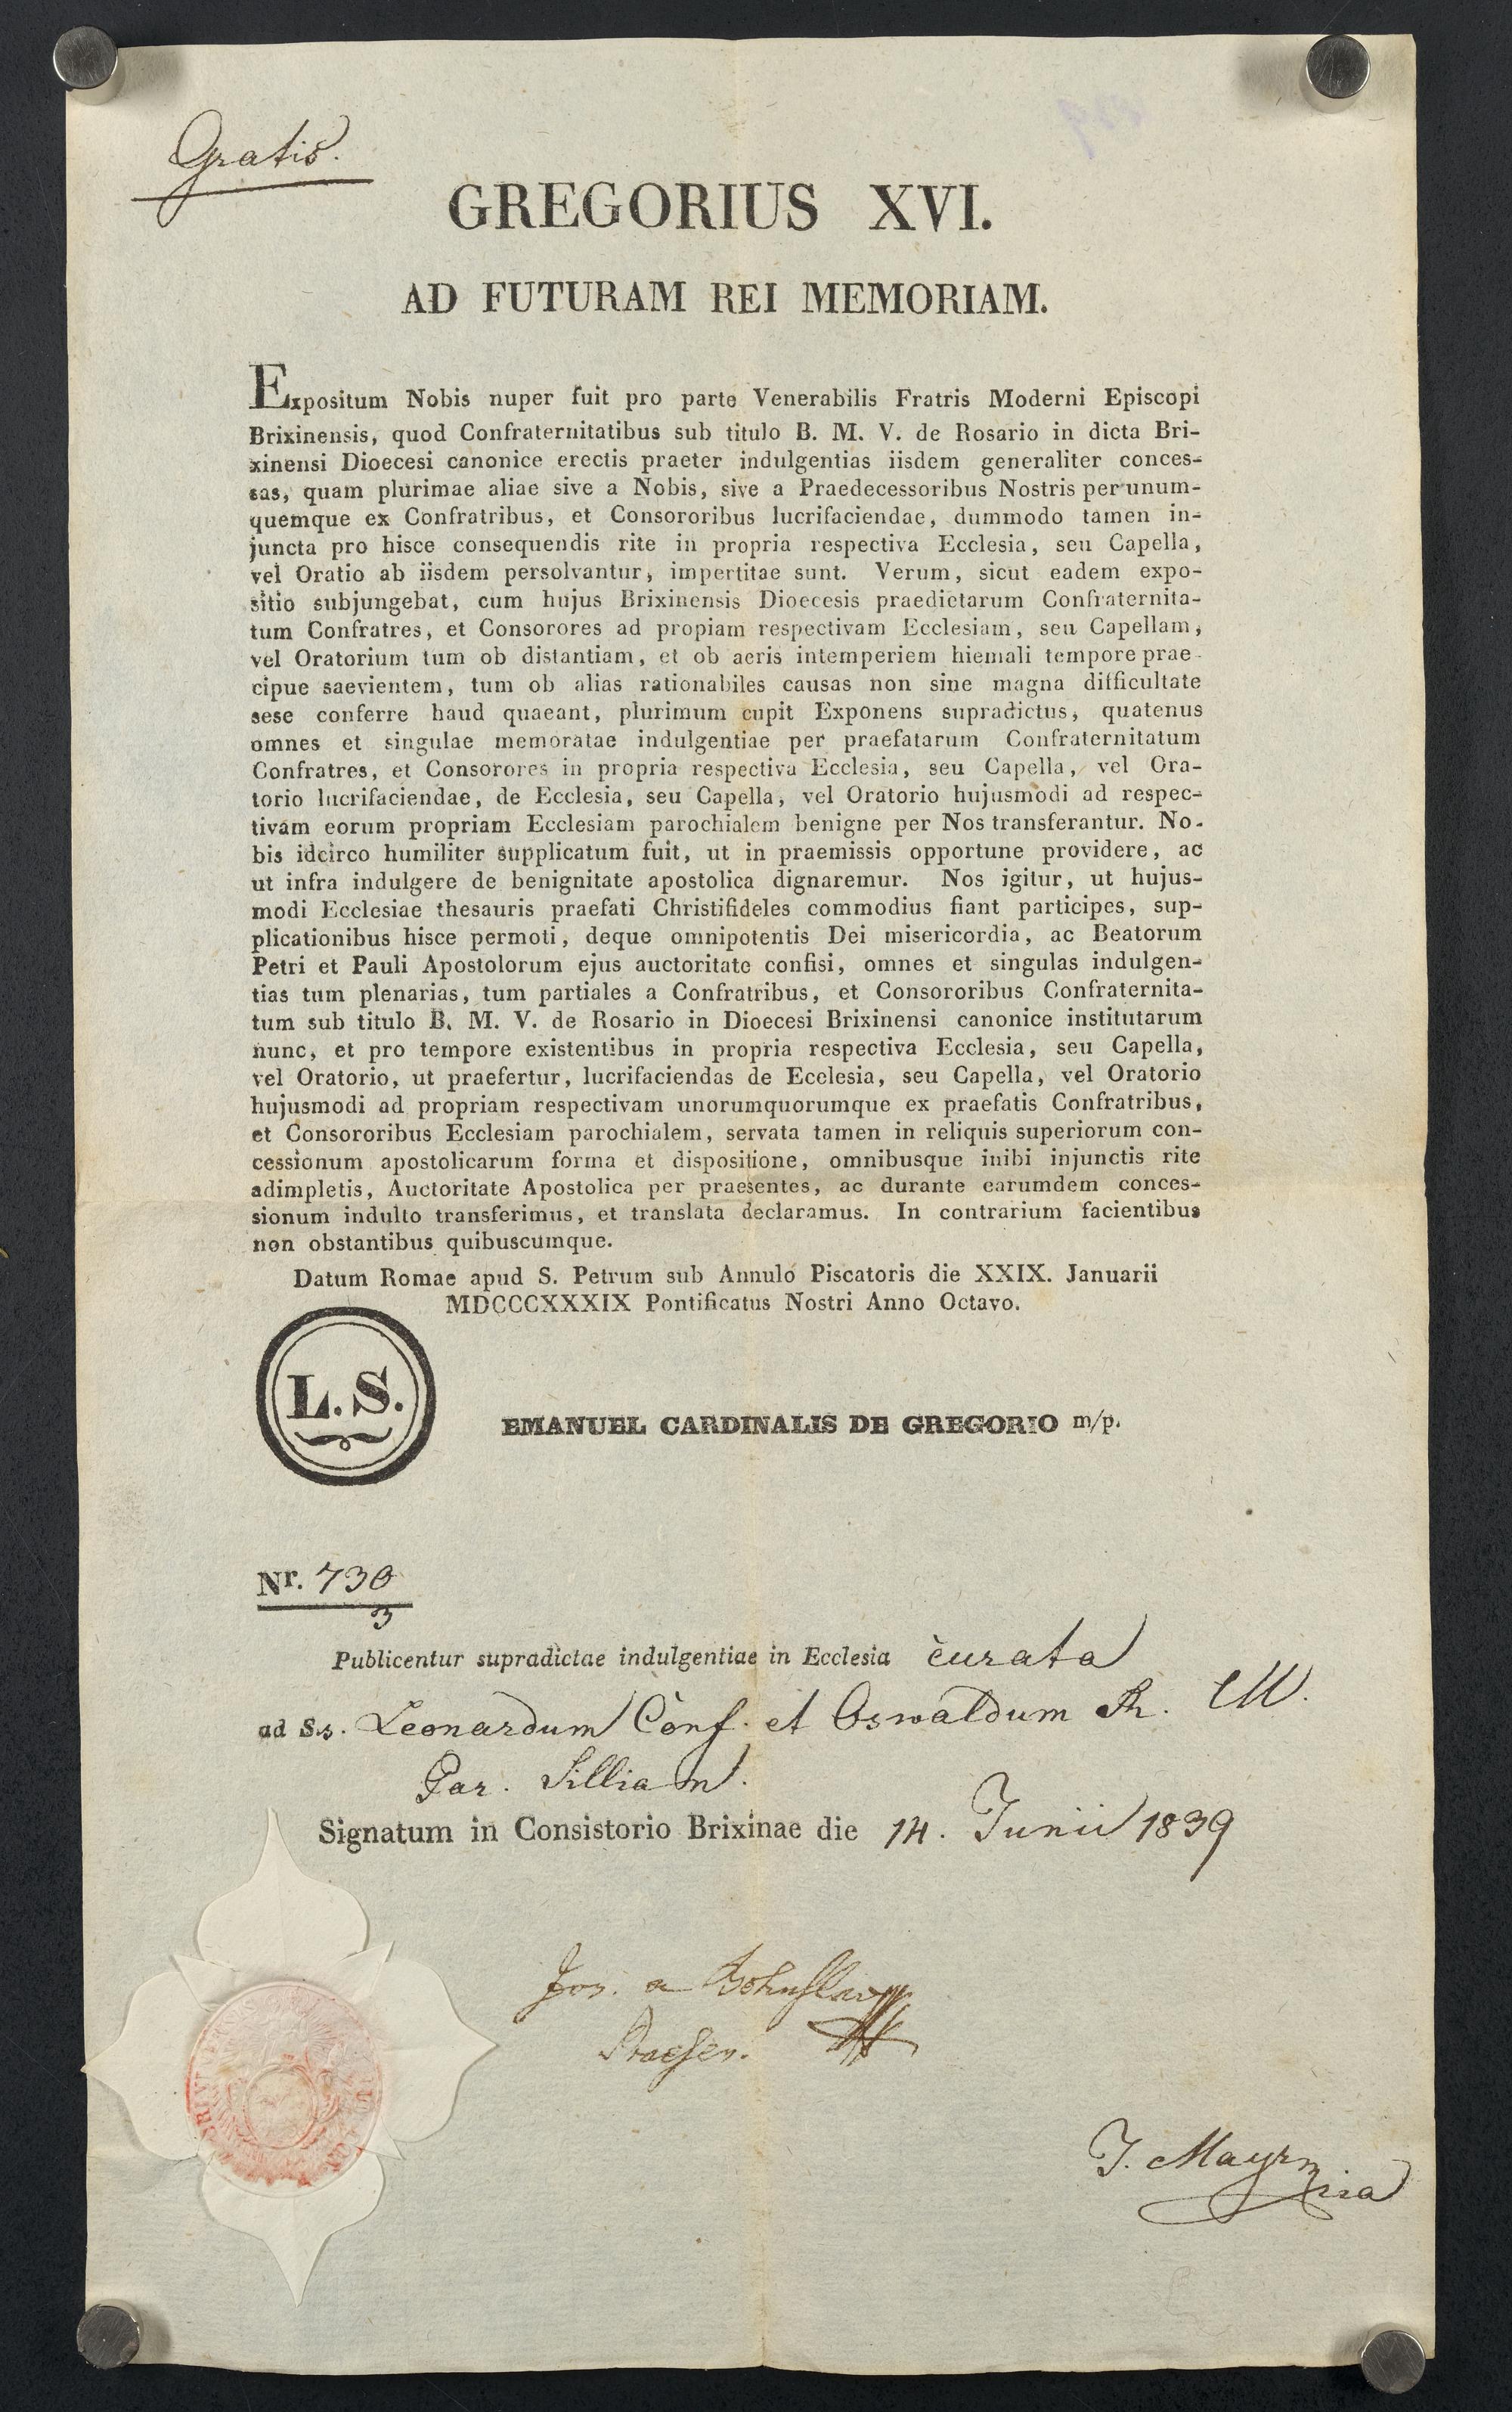 Gratis.
GREGORIUS XVI.
AD FUTURAM REI MEMORIAM.
Expositum Nobis nuper fuit pro parte Venerabilis Fratris Moderni Episcopi
Brixinensis, quod Confraternitatibus sub titulo B. M. V. de Rosario in dicta Bri-
xinensi Dioecesi canonice erectis praeter indulgentias iisdem generaliter conces-
sas, quam plurimae aliae sive a Nobis, sive a Praedecessoribus Nostris per unum-
quemque ex Confratribus, et Consororibus lucrifaciendae, dummodo tamen in-
juncta pro hisce consequendis rite in propria respectiva Ecclesia, seu Capella,
vel Oratio ab iisdem persolvantur, impertitae sunt. Verum, sicut eadem expo-
sitio subjungebat, cum hujus Brixinensis Dioecesis praedictarum Confraternita-
tum Confratres, et Consorores ad propiam respectivam Ecclesiam, seu Capellam,
vel Oratorium tum ob distantiam, et ob aeris intemperiem hiemali tempore prae-
cipue saevientem, tum ob alias rationabiles causas non sine magna difficultate
sese conferre haud quaeant, plurimum cupit Exponens supradictus, quatenus
omnes et singulae memoratae indulgentiae per praefatarum Confraternitatum
Confratres, et Consorores in propria respectiva Ecclesia, seu Capella, vel Ora-
torio lucrifaciendae, de Ecclesia, seu Capella, vel Oratorio hujusmodi ad respec-
tivam eorum propriam Ecclesiam parochialem benigne per Nos transferantur. No-
bis idcirco humiliter supplicatum fuit, ut in praemissis opportune providere, ac
ut infra indulgere de benignitate apostolica dignaremur. Nos igitur, ut hujus-
modi Ecclesiae thesauris praefati Christifideles commodius fiant participes, sup-
plicationibus hisce permoti, deque omnipotentis Dei misericordia, ac Beatorum
Petri et Pauli Apostolorum ejus auctoritate confisi, omnes et singulas indulgen-
tias tum plenarias, tum partiales a Confratribus, et Consororibus Confraternita-
tum sub titulo B. M. V. de Rosario in Dioecesi Brixinensi canonice institutarum
nunc, et pro tempore existentibus in propria respectiva Ecclesia, seu Capella,
vel Oratorio, ut praefertur, lucrifaciendas de Ecclesia, seu Capella, vel Oratorio
hujusmodi ad propriam respectivam unorumquorumque ex praefatis Confratribus,
et Consororibus Ecclesiam parochialem, servata tamen in reliquis superiorum con-
cessionum apostolicarum forma et dispositione, omnibusque inibi injunctis rite
adimpletis, Auctoritate Apostolica per praesentes, ac durante earumdem conces-
sionum indulto transferimus, et translata declaramus. In contrarium facientibus
non obstantibus quibuscumque.
Datum Romae apud S. Petrum sub Annulo Piscatoris die XXIX. Januarii
MDCCCXXXIX Pontificatus Nostri Anno Octavo.
L.S.
EMANUEL CARDINALIS DE GREGORIO m/p.
Nr. 730
3
Publicentur supradictae indulgentiae in Ecclesia curata
ad S.s. Leonardum Conf. et Oswaldum R. M.
Par. Silliam.
Signatum in Consistorio Brixinae die 14. Junii 1839
Jos. a
Praeses.
J. Mayr